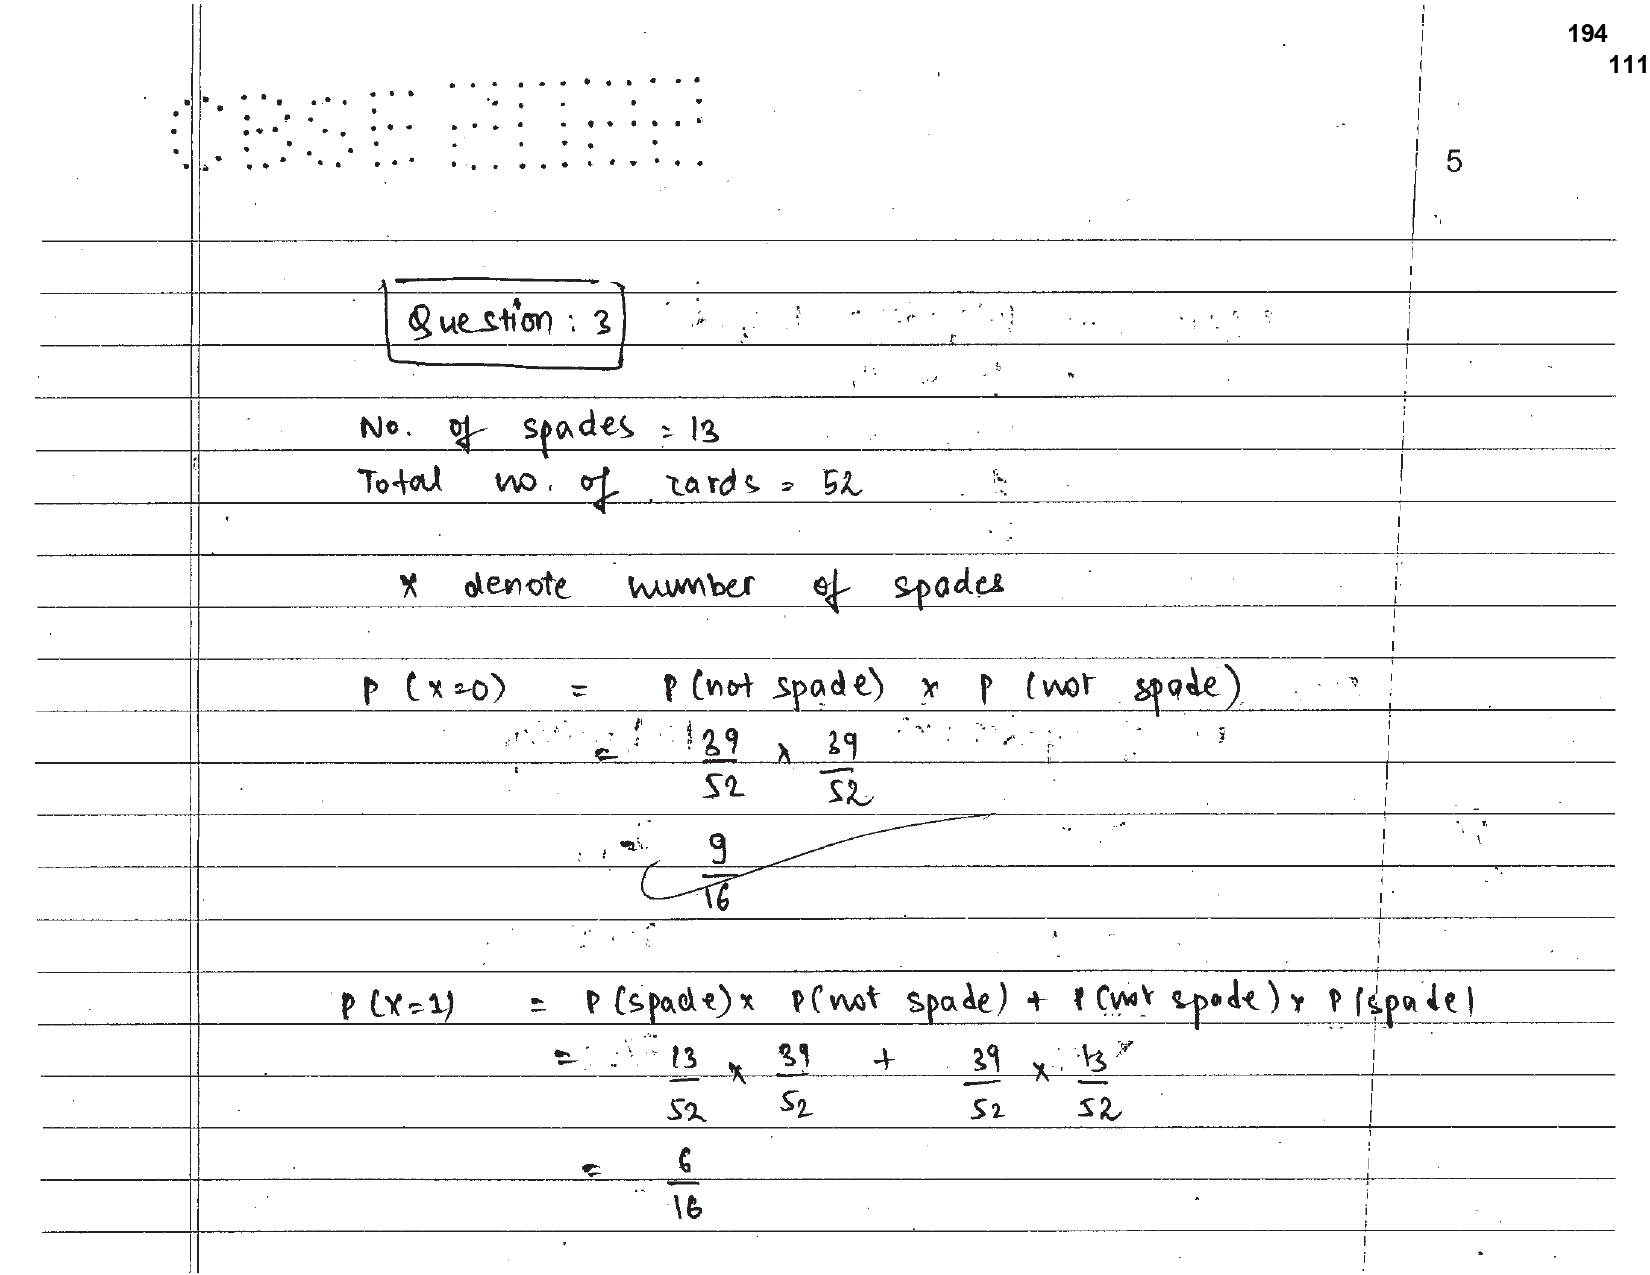 194
111
CBSE
5
Question : 3
No. of spades = 13
Total no. of cards = 52
x denote number of spades
P (x=0) = P (not spade) x P (not spade)
= 39/52 x 39/52
= 9/16
P (x=1) = P (spade) x P (not spade) + P (not spade) x P (spade)
= 13/52 x 39/52 + 39/52 x 13/52
= 6/16